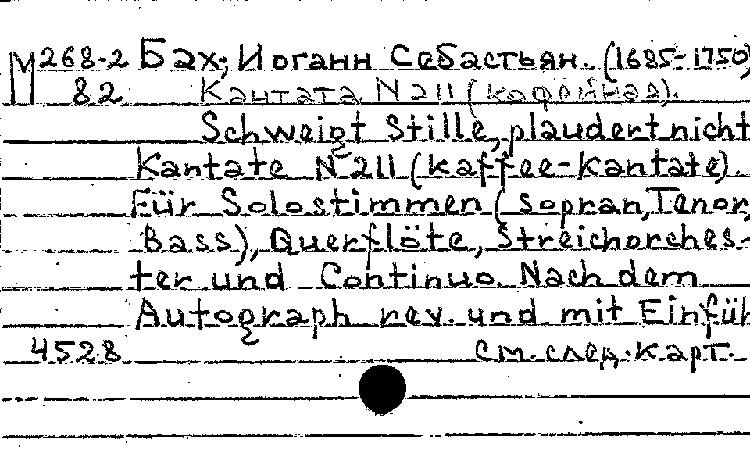 М268-2 Бах, Иоганн Себастьян. (1685-1750)
82 Кантата N 211 (кофейная).
Schweigt Stille, plaudert nicht
Kantate N 211 (Kaffee-Kantate).
Für Solostimmen (Sopran, Tenor,
Bass), Querflöte, Streichorches-
ter und Continuo. Nach dem
Autograph rev. und mit Einfüh
4528 См. след. карт.